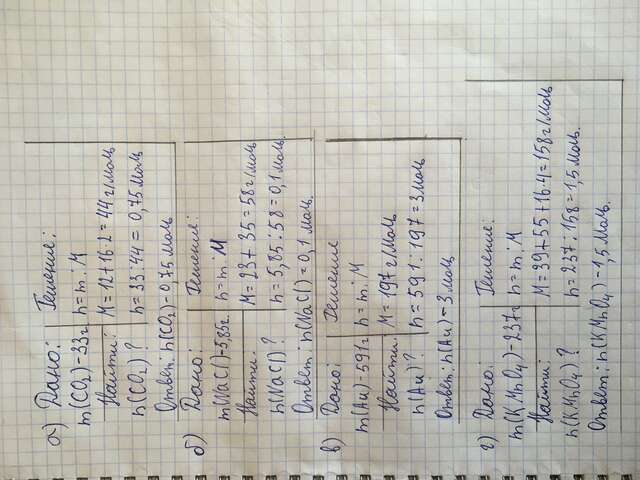 а) Дано: Решение:
m(CO₂)-33г n=m:M
Найти: M=12+16·2=44г/моль
n(CO₂)? n=33:44=0,75моль
Ответ: n(CO₂)-0,75моль
б) Дано: Решение:
m(NaCl)-5,85г n=m:M
Найти: M=23+35=58г/моль
n(NaCl)? n=5,85:58=0,1моль
Ответ: n(NaCl)=0,1моль.
в) Дано: Решение
m(Au)-591г n=m:M
Найти: M=197г/моль
n(Au)? n=591:197=3моль
Ответ: n(Au)-3моль
г) Дано: Решение:
m(KMnO₄)-237г n=m:M
Найти: M=39+55+16·4=158г/моль
n(KMnO₄)? n=237:158=1,5моль.
Ответ: n(KMnO₄)-1,5моль.